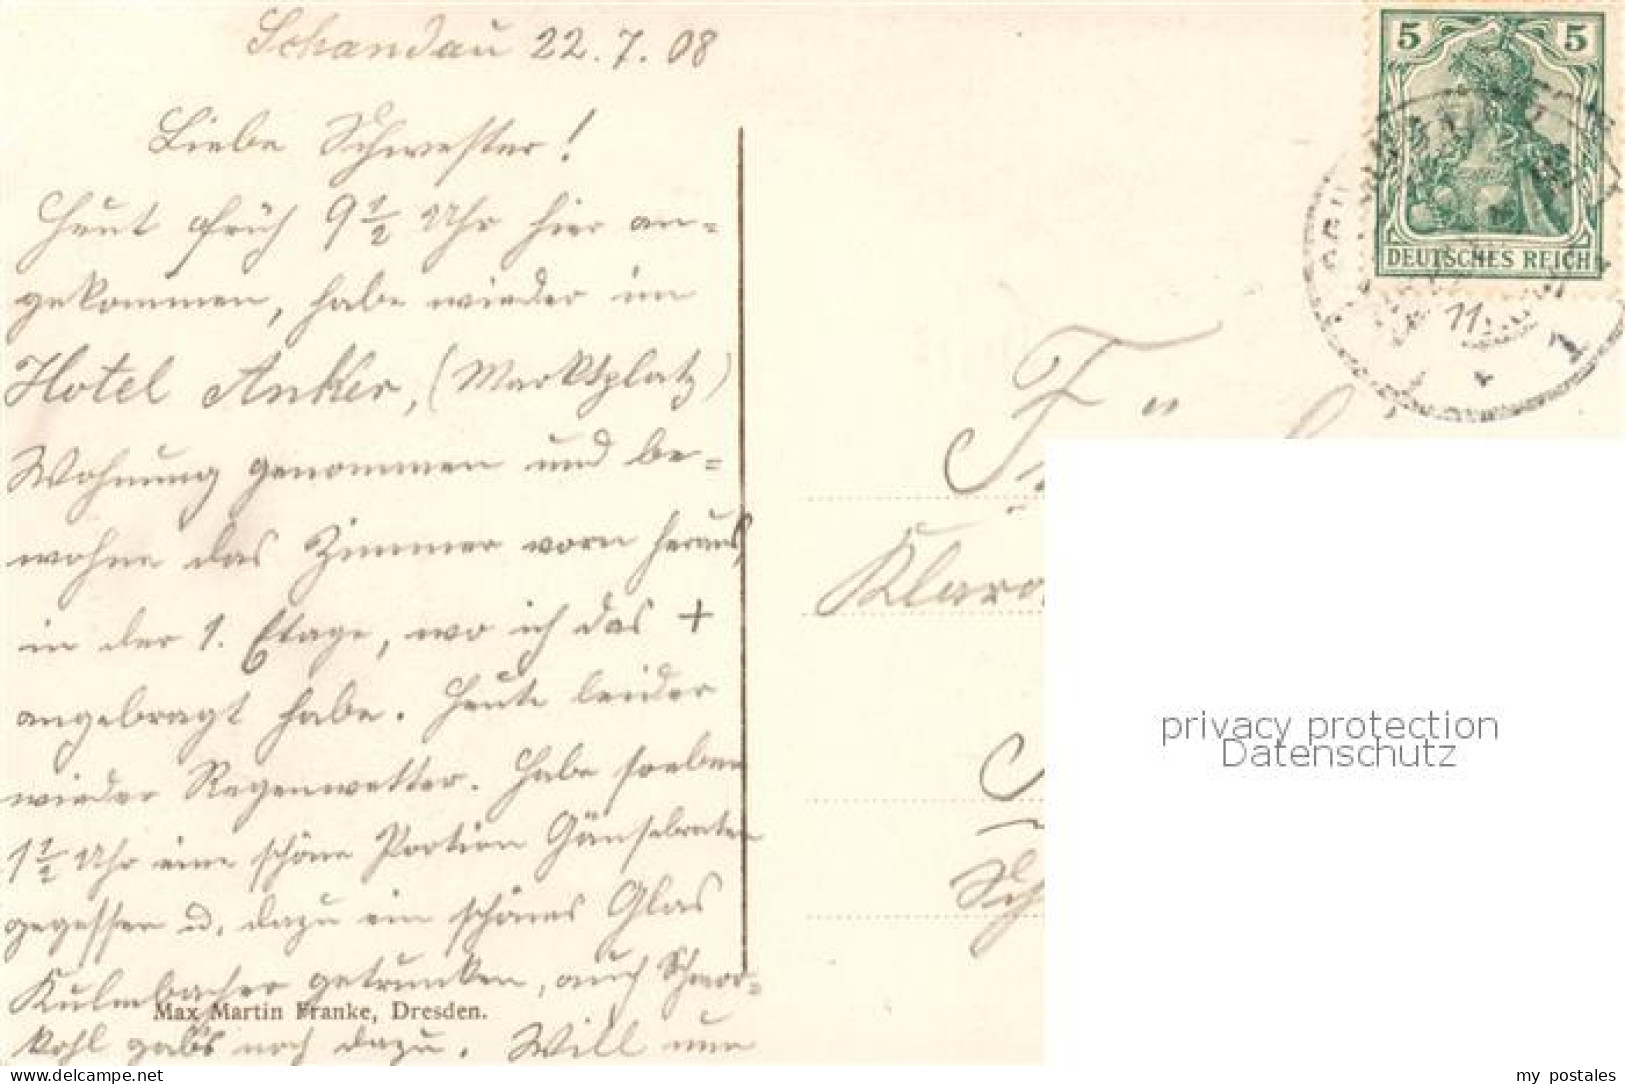 Schandau 22.7.08
5 5
Liebe Schwester!
DEUTSCHES REICH
Heut früh 9½ Uhr hier an=
gekommen, habe wieder im
Hotel Anker, (Marktplatz)
Wohnung genommen und be=
wohne das Zimmer vorn heraus,
in der 1. Etage, wo ich das +
angebragt habe. Heute leider
wieder Regenwetter. Habe soeben
1½ Uhr eine schöne Portion Gänsebraten
gegessen u. dazu ein schönes Glas
Kulmbacher getrunken, auch Schmor=
kohl gabs noch dazu. Will nun
Max Martin Franke, Dresden.
11
1
Klara
privacy protection
Datenschutz
www.delcampe.net
my_postales